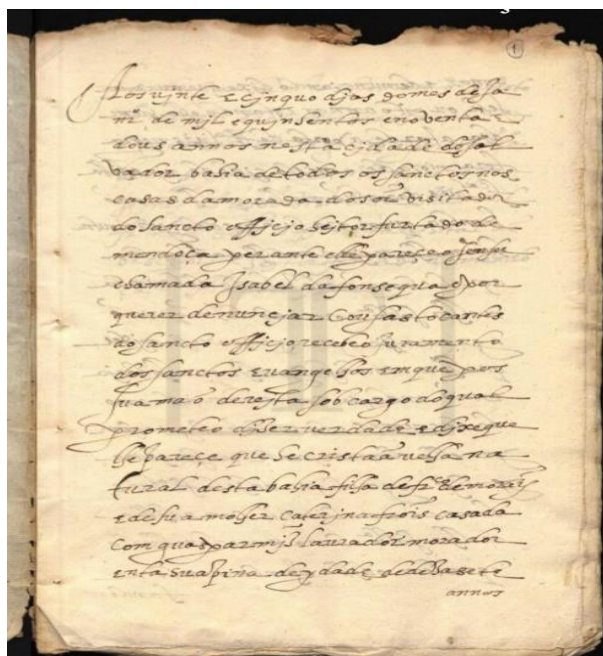 1
Aos vinte e cinquo dias do mes de Ja
nro de mil e quinsentos e noventa e
dous annos nesta cidade do sal
vador bahia de todos os sanctos nos
casas da morada do sor visitador
do sancto officio heitor furtado de
mendoça perante elle pareceo
chamada Isabel da fonsequa e por
querer denunciar cousas tocantes
do sancto officio recebeo juramento
dos sanctos evangelhos em que pos
sua mão dereita sob cargo do qual
prometeo dizer verdade e dixe que
lhe parece que he cristaã velha na
tural desta bahia filha de frco de morais
e de sua molher Caterina frois casada
com guaspar miz laurador morador
em de ydade de desasete
annos